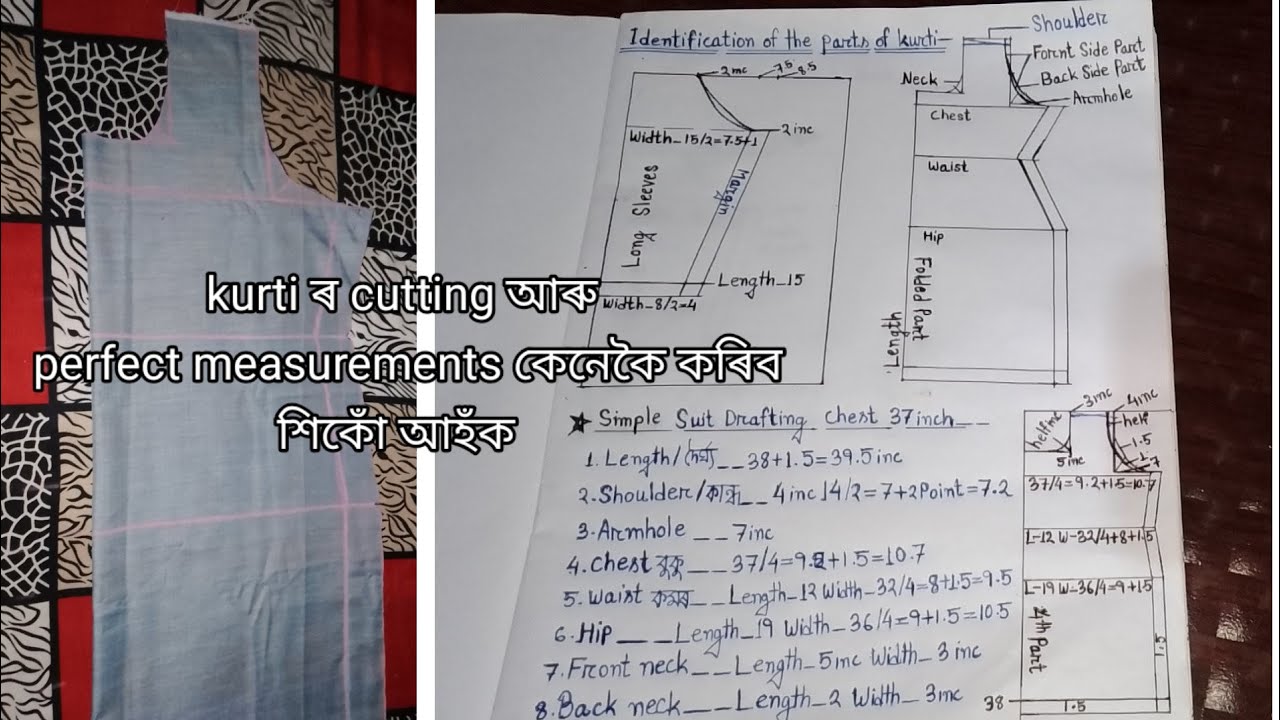 kurti ৰ cutting আৰু
perfect measurements কেনেকৈ কৰিব
শিকোঁ আহঁক
Identification of the parts of kurti-
2mc 7.5 8.5
2 inc
Width_15/2=7.5+1
Long Sleeves
Margin
Length_15
Width_8/2=4
Shoulder
Fornt Side Part
Back Side Part
Armhole
Neck
Chest
Waist
Hip
Folded Part
Length
★ Simple Suit Drafting Chest 37inch__
1. Length/দৈৰ্ঘ্য__38+1.5=39.5inc
2. Shoulder/কান্ধ__4inc 14/2=7+2Point=7.2
3. Armhole __7inc
4. Chest বুকু__37/4=9.2+1.5=10.7
5. Waist কমৰ__Length_12 Width_32/4=8+1.5=9.5
6. Hip___Length_19 Width_36/4=9+1.5=10.5
7. Front neck__Length_5inc Width_3 inc
8. Back neck___Length_2 Width_3mc
3mc 4mc
helfinc
helf
1.5
1
7
5inc
37/4=9.2+1.5=10.7
L-12 W-32/4+8+1.5
L-19 W-36/4=9+1.5
4th Part
1.5
38
1.5